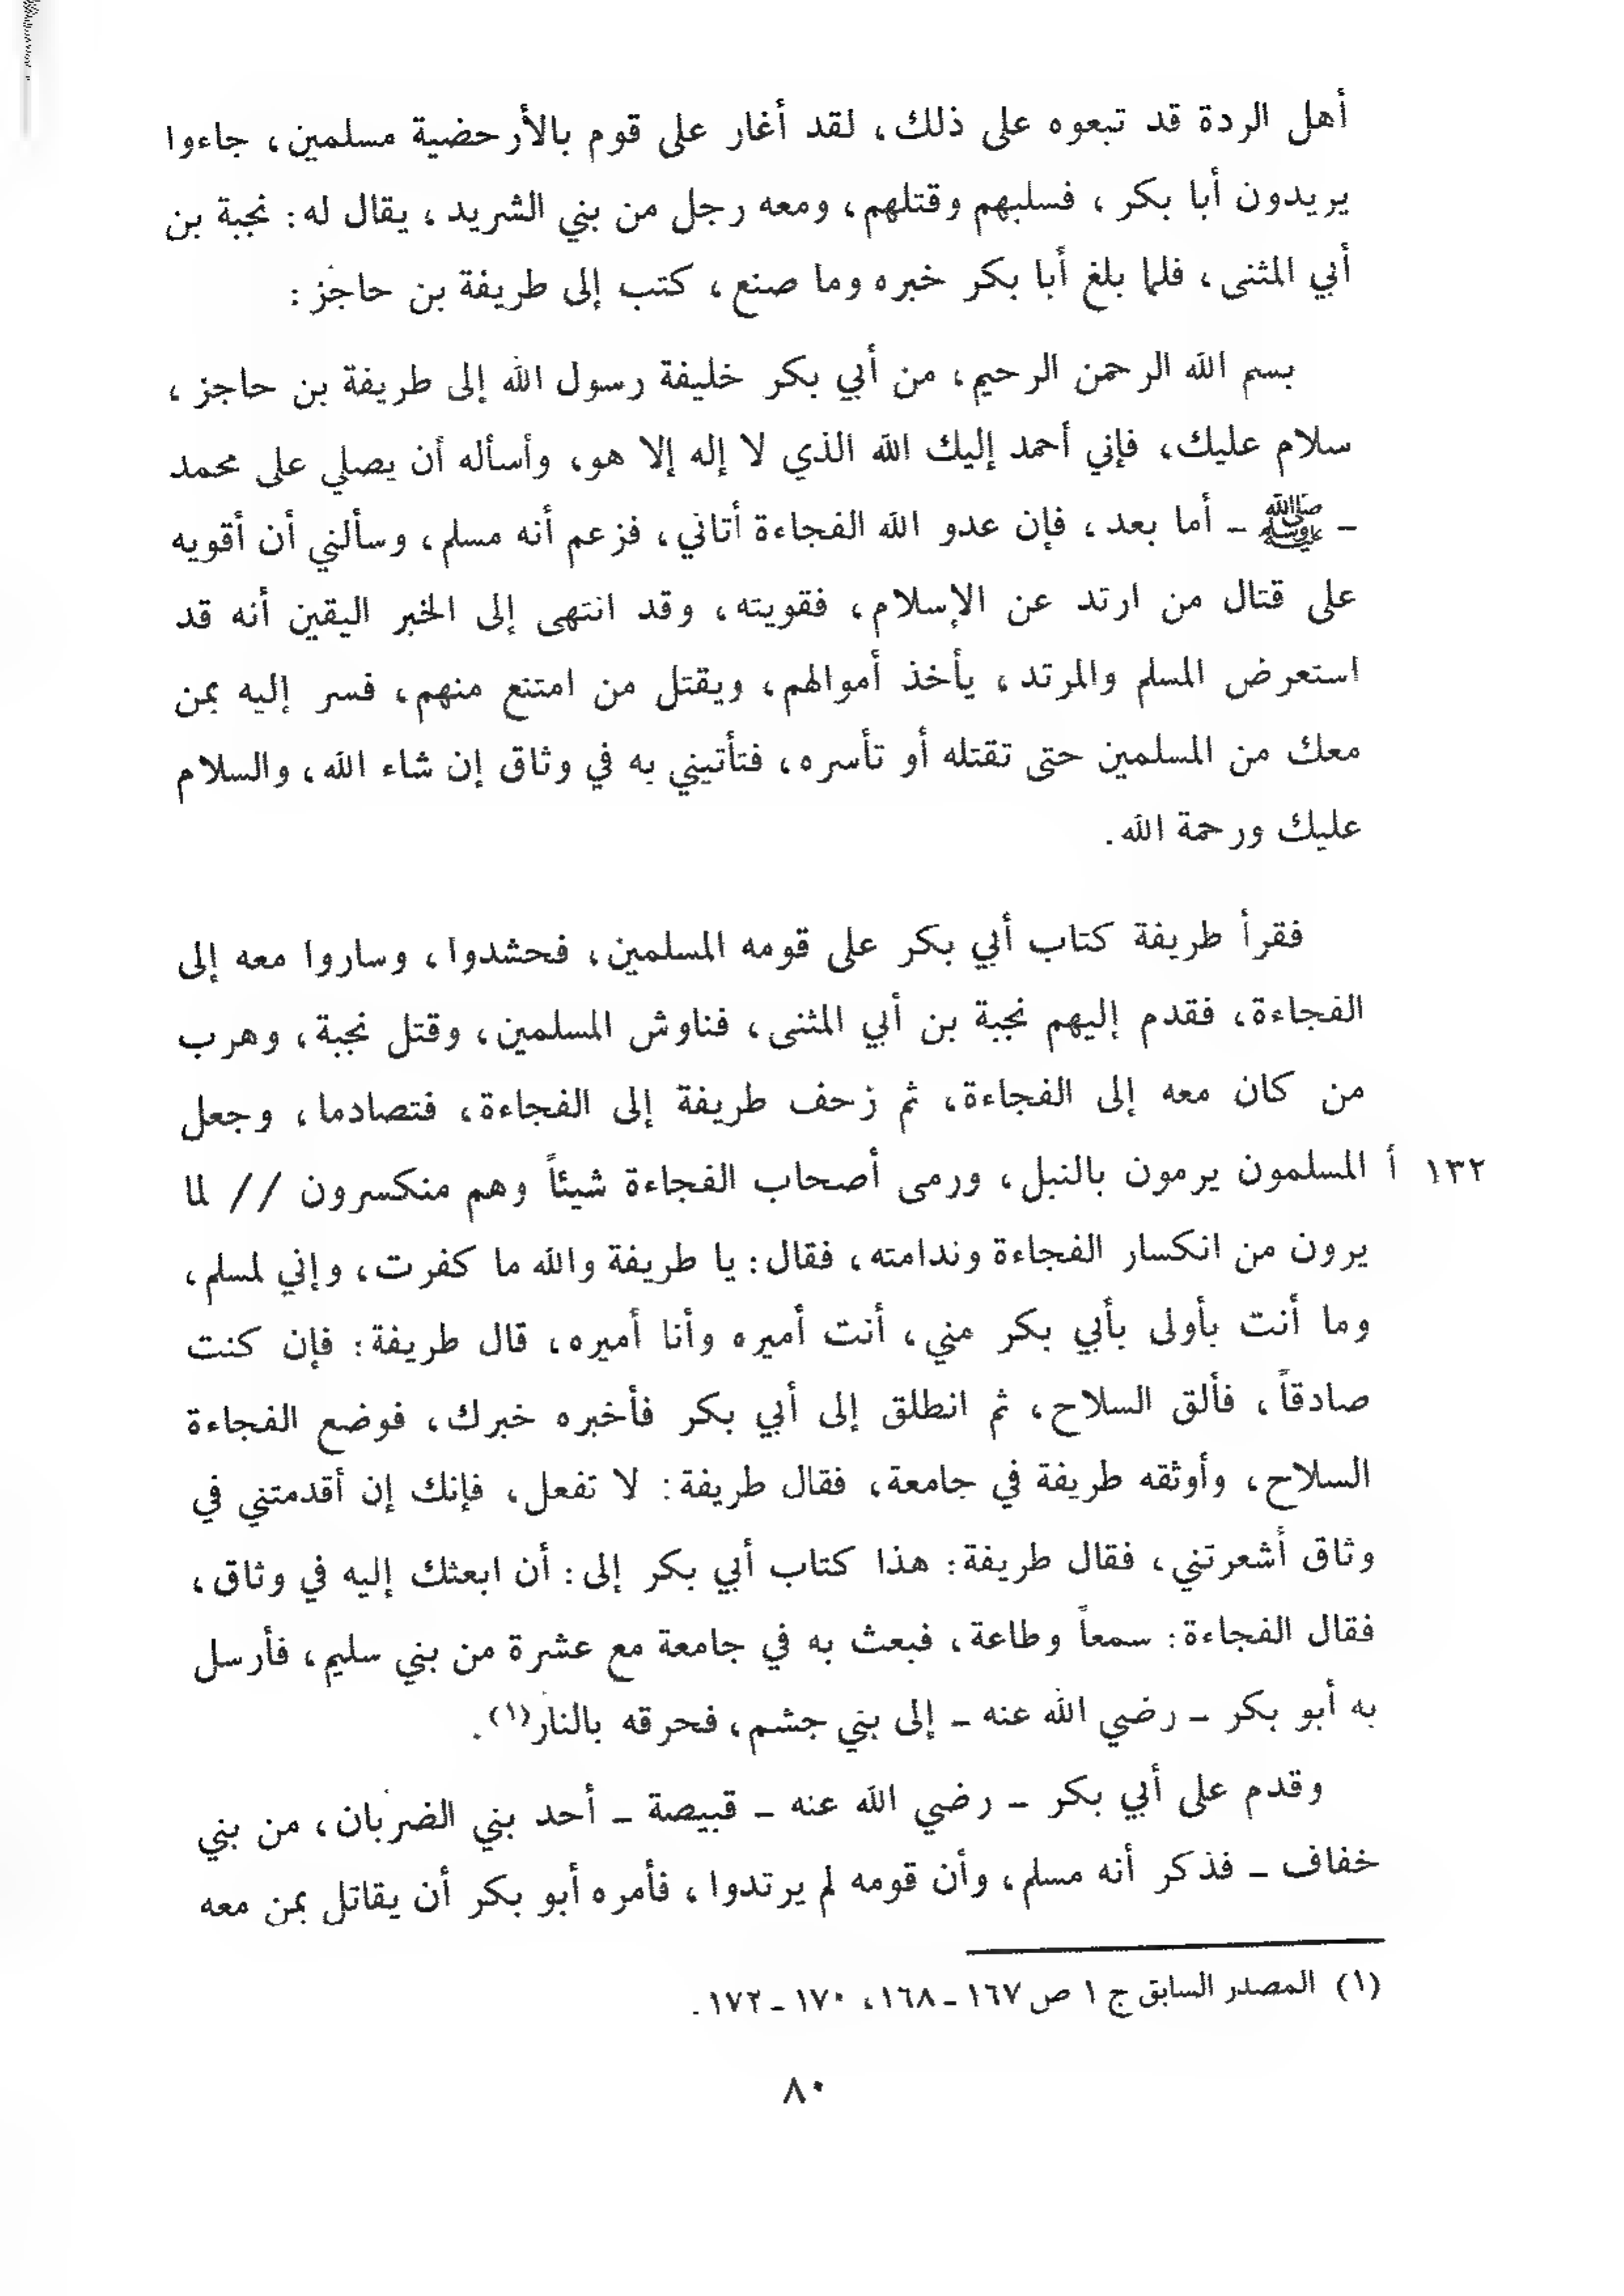 أهل الردة قد تبعوه على ذلك، لقد أغار على قوم بالأرحضية مسلمين، جاءوا
يريدون أبا بكر، فسلبهم وقتلهم، ومعه رجل من بني الشريد، يقال له: نجبة بن
أبي المثنى، فلما بلغ أبا بكر خبره وما صنع، كتب إلى طريفة بن حاجز:
بسم الله الرحمن الرحيم، من أبي بكر خليفة رسول الله إلى طريفة بن حاجز،
سلام عليك، فإني أحمد إليك الله الذي لا إله إلا هو، وأسأله أن يصلي على محمد
ـ ﷺ ـ أما بعد، فإن عدو الله الفجاءة أتاني، فزعم أنه مسلم، وسألني أن أقويه
على قتال من ارتد عن الإسلام، فقويته، وقد انتهى إلى الخبر اليقين أنه قد
استعرض المسلم والمرتد، يأخذ أموالهم، ويقتل من امتنع منهم، فسر إليه بمن
معك من المسلمين حتى تقتله أو تأسره، فتأتيني به في وثاق إن شاء الله، والسلام
عليك ورحمة الله.
فقرأ طريفة كتاب أبي بكر على قومه المسلمين، فحشدوا، وساروا معه إلى
الفجاءة، فقدم إليهم نجبة بن أبي المثنى، فناوش المسلمين، وقتل نجبة، وهرب
من كان معه إلى الفجاءة، ثم زحف طريفة إلى الفجاءة، فتصادما، وجعل
١٣٢ أ المسلمون يرمون بالنبل، ورمى أصحاب الفجاءة شيئاً وهم منكسرون // لما
يرون من انكسار الفجاءة وندامته، فقال: يا طريفة والله ما كفرت، وإني لمسلم،
وما أنت بأولى بأبي بكر مني، أنت أميره وأنا أميره، قال طريفة: فإن كنت
صادقاً، فألق السلاح، ثم انطلق إلى أبي بكر فأخبره خبرك، فوضع الفجاءة
السلاح، وأوثقه طريفة في جامعة، فقال طريفة: لا تفعل، فإنك إن أقدمتني في
وثاق أشعرتني، فقال طريفة: هذا كتاب أبي بكر إلى: أن ابعثك إليه في وثاق،
فقال الفجاءة: سمعاً وطاعة، فبعث به في جامعة مع عشرة من بني سليم، فأرسل
به أبو بكر ـ رضي الله عنه ـ إلى بني جشم، فحرقه بالنار(١).
وقدم على أبي بكر ـ رضي الله عنه ـ قبيصة ـ أحد بني الضربان، من بني
خفاف ـ فذكر أنه مسلم، وأن قومه لم يرتدوا، فأمره أبو بكر أن يقاتل بمن معه
(١) المصدر السابق ج ١ ص ١٦٧ ـ ١٦٨، ١٧٠ ـ ١٧٢.
٨٠